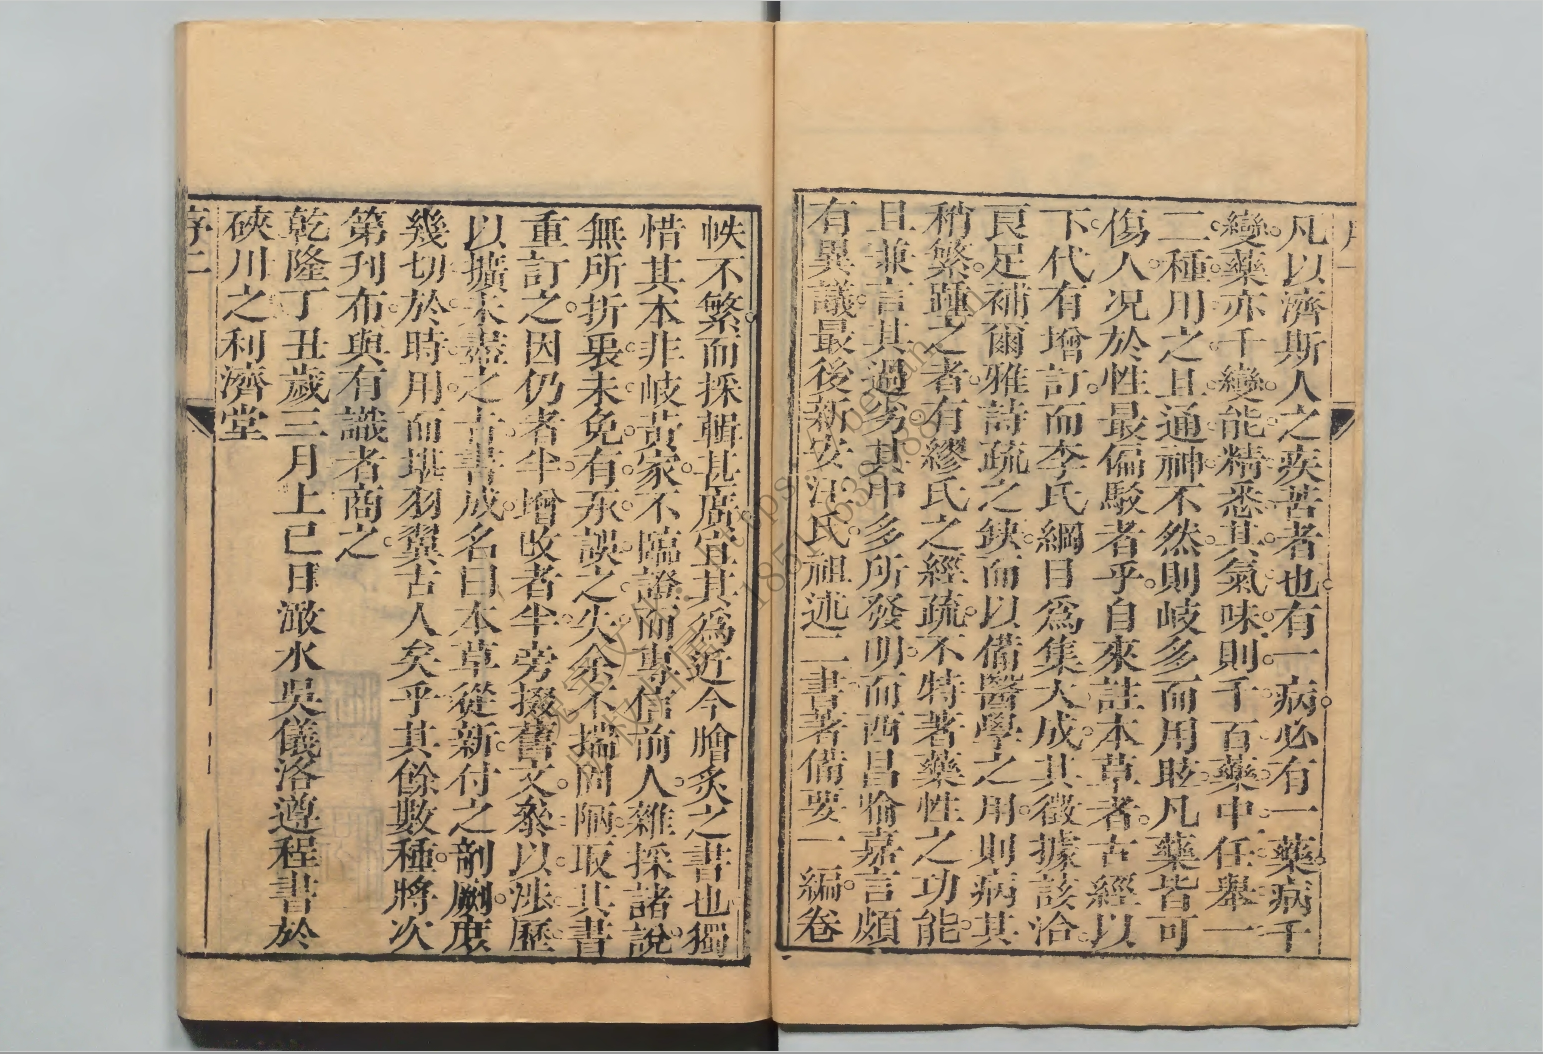 凡以濟斯人之疾苦者也有一病必有一藥病千
變藥亦千變能精悉其氣味則千百藥中任舉一
二種用之且通神不然則岐多而用眩凡藥皆可
傷人况於性最偏駁者乎自來註本草者古經以
下代有增訂而李氏綱目爲集大成其徵據該洽
良足補爾雅詩疏之缺而以備醫學之用則病其
稍繁踵之者有繆氏之經疏不特著藥性之功能
且兼言其過劣其中多所發明而西昌喻嘉言頗
有異議最後新安汪氏祖述二書著備要一編卷
帙不繁而採輯甚廣宜其爲近今膾炙之書也獨
惜其本非岐黃家不臨證而專信前人雜採諸說
無所折衷未免有承誤之失余不揣固陋取其書
重訂之因仍者半增改者半旁掇舊文參以涉歷
以擴未盡之旨書成名曰本草從新付之剞劂庶
幾切於時用而堪羽翼古人矣乎其餘數種將次
第刊布與有識者商之
乾隆丁丑歲三月上巳日澉水吳儀洛遵程書於
硤川之利濟堂
序二